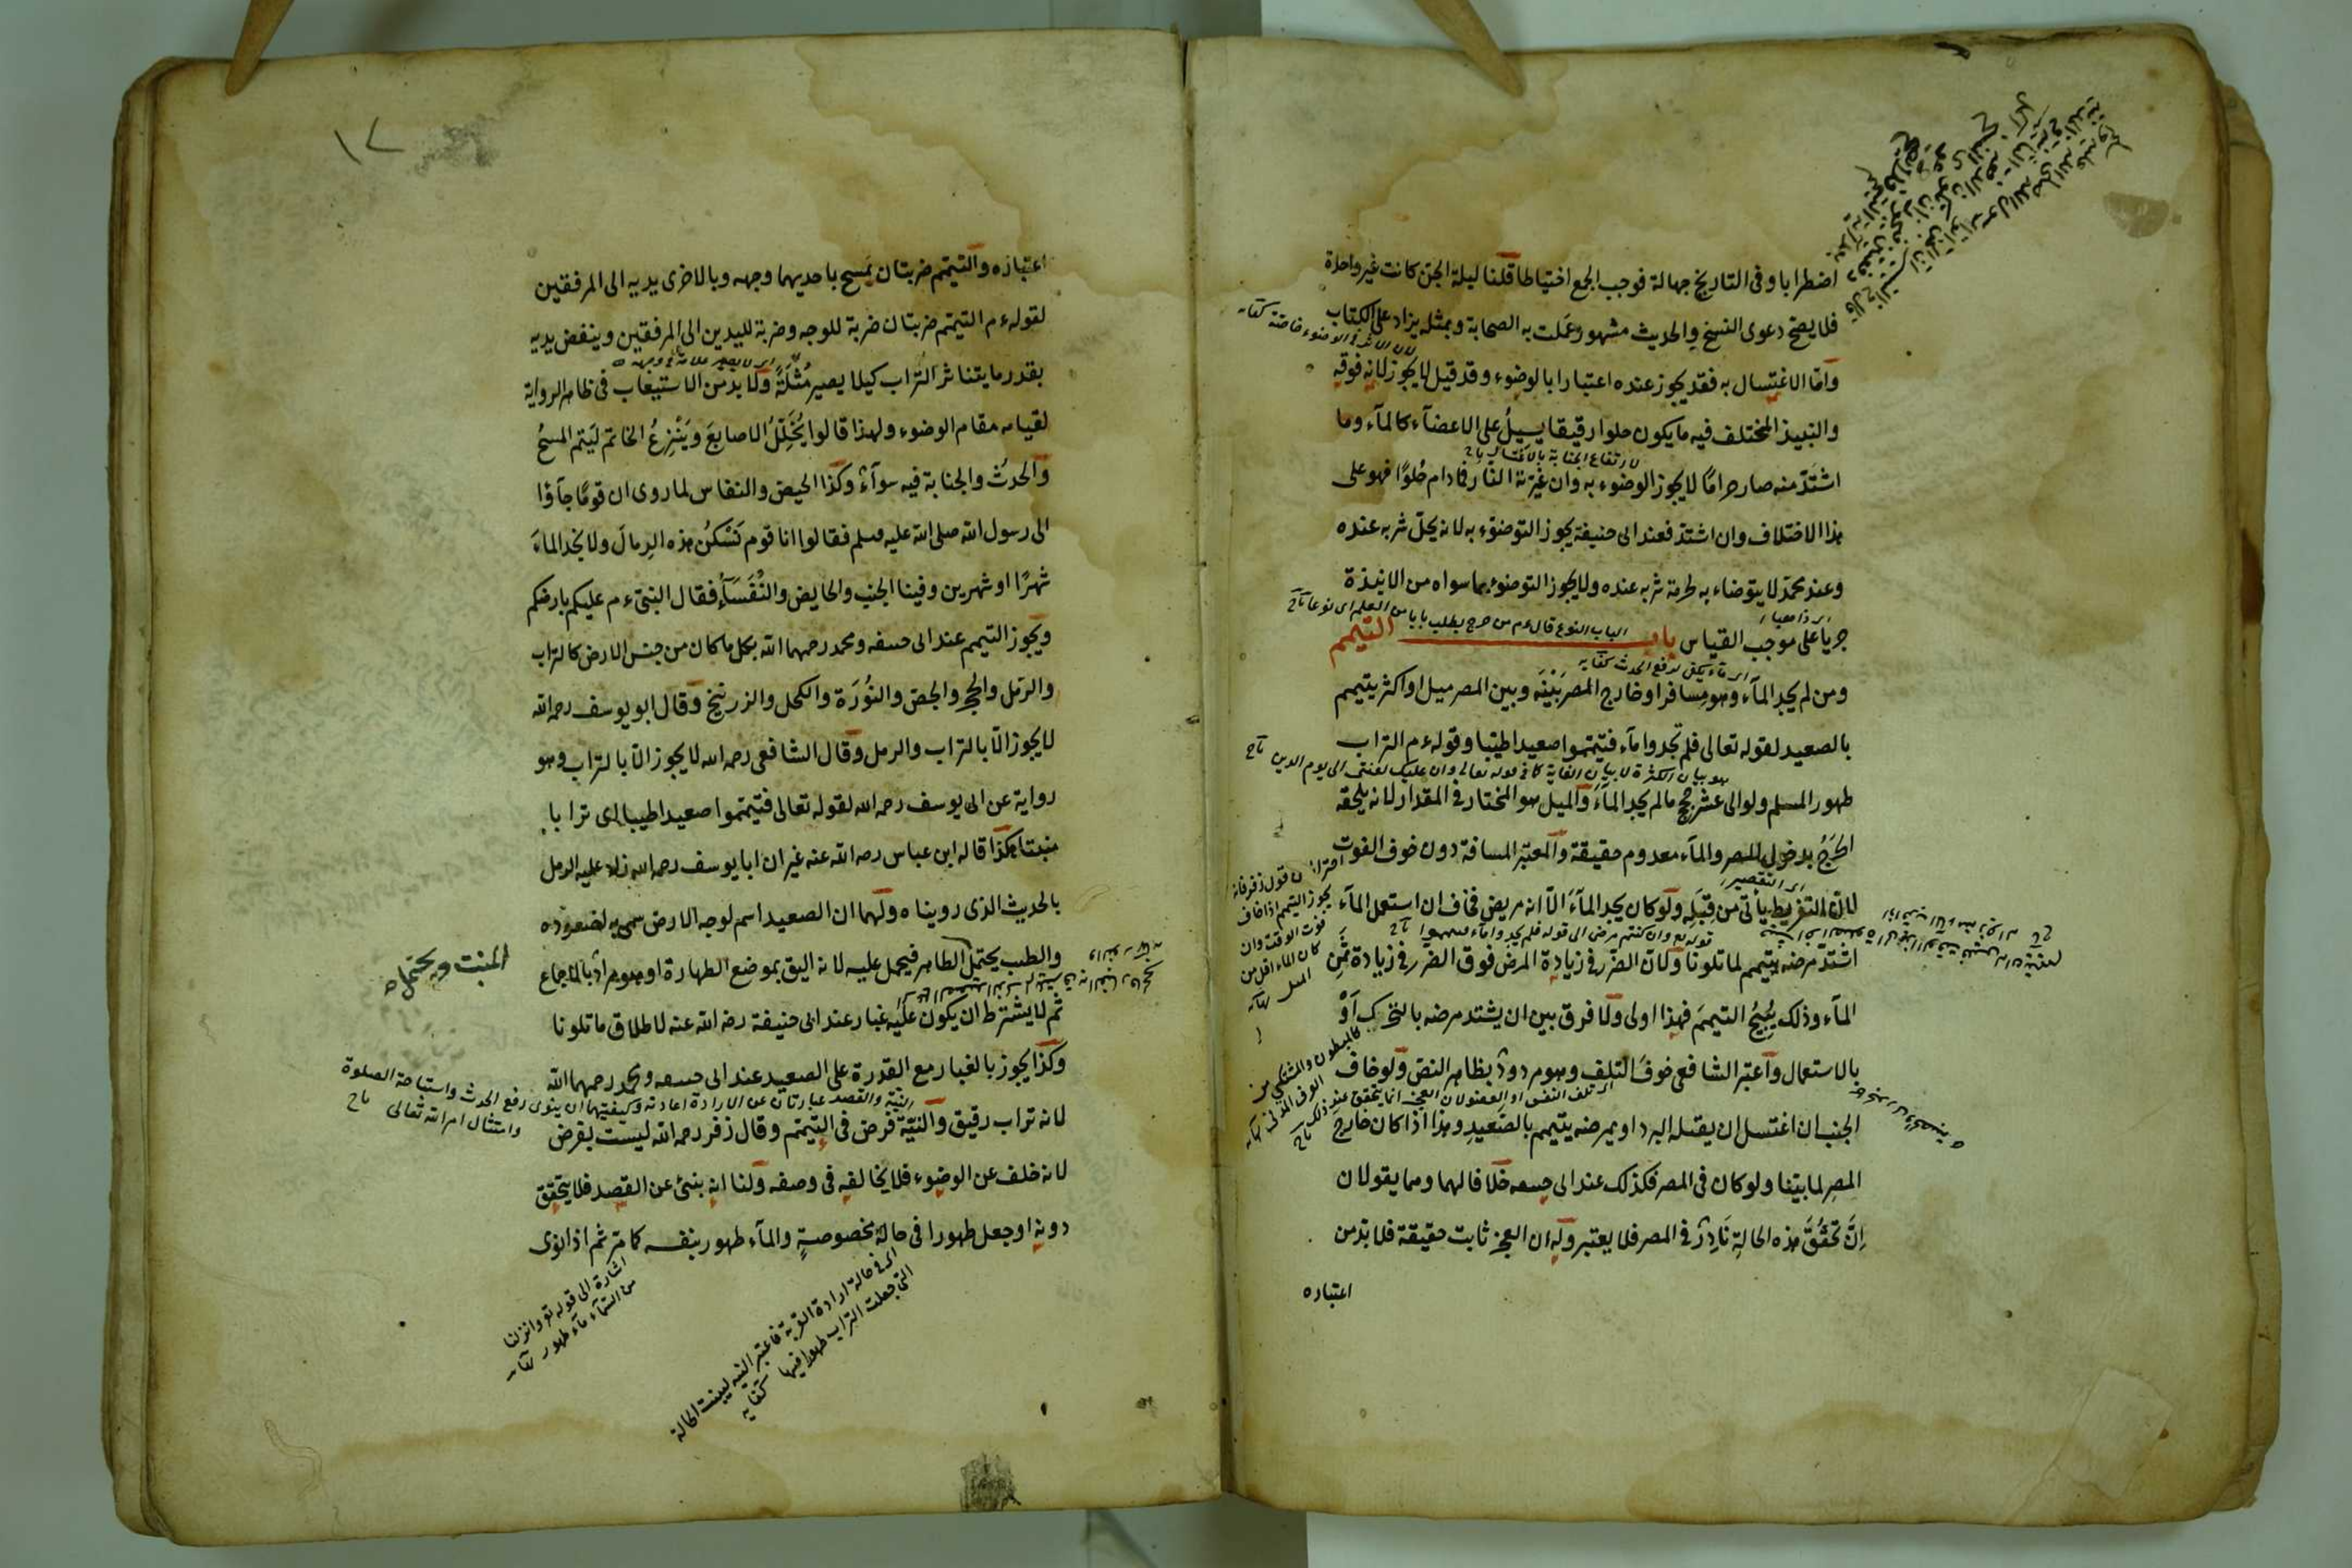 اضطرابا وفى التاريخ جهالة فوجب الجمع احتياطا قلنا ليلة الجن كانت غير واحدة
فلا يصح دعوى النسخ والحديث مشهور عملت به الصحابة وبمثله يزاد على الكتاب
وأما الاغتسال به فقد يجوز عنده اعتبارا بالوضوء وقد قيل لا يجوز لانه فوقه
والنبيذ المختلف فيه ما يكون حلوا رقيقا يسيل على الاعضاء كالمآء وما
لارتفاع الجنابة بالاغتسال تاج
اشتد منه صار حراما لا يجوز الوضوء به وان غيرته النار فما دام حلوًا فهو على
هذا الاختلاف وان اشتد فعند ابى حنيفة يجوز التوضوء به لانه يحل شربه عنده
وعند محمد لا يتوضاء به لحرمة شربه عنده ولا يجوز التوضوء بما سواه من الانبذة
الباب النوع قال ءم من خرج يطلب بابا من العلم اى نوعا تاج
جريا على موجب القياس باب التيمم
اى ماء يكفى لرفع الحدث كفايه
ومن لم يجد المآء وهو مسافر او خارج المصر بَيْنَه وبين المصر ميل او اكثر يتيمم
بالصعيد لقوله تعالى فلم تجدوا مآء فتيمموا صعيدا طيبا وقوله ءم التراب
طهور المسلم ولو الى عشر حجج ما لم يجد المآءَ والميل هو المختار فى المقدار لانه يلحقه
الحَرَجُ بدخول المصر والمآء معدوم حقيقة والمعتبر المسافة دون خوف الفوت
اى التقصير
لان التفريط يأتى من قِبَلِه ولو كان يجد المآءَ الا انه مريض فخاف ان استعمل المآء
اشتد مرضه يتيمم لما تلونا ولان الضرر فى زيادة المرض فوق الضرر فى زيادة ثمن
المآء وذلك يُبِيْحُ التيمم فهذا اولى ولا فرق بين ان يشتد مرضه بالتحرك أَوْ
بالاستعمال واعتبر الشافعى خوفَ التلف وهو مردودٌ بظاهر النص ولو خاف
الجنب ان اغتسل ان يقتله البرد او يمرضه يتيمم بالصَعِيدِ وهذا اذا كان خارج
المصر لما بيننا ولو كان فى المصر فكذلك عند ابى حنيفه خلافا لهما وهما يقولان
اِنَّ تَحَقُّقَ هذه الحالة نَادِرٌ فى المصر فلا يعتبر وله ان العجز ثابت حقيقة فلا بد من
اعتباره
١٧
اعتباره والتيمم ضربتان يَمسح باحديهما وجهه وبالاخرى يديه الى المرفقين
لقوله ءم التيمم ضربتان ضربة للوجه وضربة لليدين الى المرفقين وينفض يديه
بقدر ما يتناثر التُراب كيلا يصير مُثْلَةً ولا بد من الاستيعاب فى ظاهر الرواية
لقيامه مقام الوضوء ولهذا قالوا يُخَلِّلُ الاصابعَ ويَنْزِعُ الخاتم لِيَتم المسحُ
والحدثُ والجنابة فيه سوآءٌ وكذا الحيض والنفاس لما روى ان قومًا جآؤا
الى رسول الله صلى الله عليه وسلم فقالوا انا قوم نَسْكُنُ هذه الرِمالَ ولا نجد الماءَ
شهرًا او شهرين وفينا الجنب والحايض والنُفَسَآءُ فقال النبى ءم عليكم بارضكم
ويجوز التيمم عند ابى حنيفه ومحمد رحمهما الله بكل ما كان من جنس الارض كالتراب
والرمل والحجر والجص والنُوْرَة والكحل والزرنيخ وقال ابو يوسف رحمه الله
لا يجوز الّا بالتراب والرمل وقال الشافعى رحمه الله لا يجوز الّا بالتراب وهو
رواية عن ابى يوسف رحمه الله لقوله تعالى فتيمموا صعيدا طيبا اى ترابا
منبتا هكذا قاله ابن عباس رضى الله عنه غير ان ابا يوسف رحمه الله زاد عليه الرمل
بالحديث الذى رويناه ولهما ان الصعيد اسم لوجه الارض سمى به لصعوده
والطيب يحتمل الطاهر فيحمل عليه لانه اليق بموضع الطهارة او هو مرادٌ بالاجماع
المنبت ويحتمل
ثم لا يشترط ان يكون عليه غبار عند ابى حنيفة رضى الله عنه لاطلاق ما تلونا
وكذا يجوز بالغبار مع القدرة على الصعيد عند ابى حنيفه ومحمد رحمهما الله
النية والقصد عبارتان عن الارادة وكيفيتهما ان ينوى رفع الحدث واستباحة الصلوة
وامتثال امر الله تعالى تاج
لانه تراب رقيق والنيّة فرض فى التيمم وقال زفر رحمه الله ليست بفرض
لانه خلف عن الوضوء فلا يخالفه فى وصفه ولنا انه ينبئ عن القصد فلا يتحقق
دونه او جعل طهورا فى حالة مخصوصةٍ والمآء طهور بنفسه كما مر ثم اذا نوى
اشارة الى قوله تع وانزلنا
من السمآء مآء طهور
اى فى حالة ارادة القربة فاعتبر النيه ليثبت الحالة
التى جعلت التراب طهورا فيها كفايه